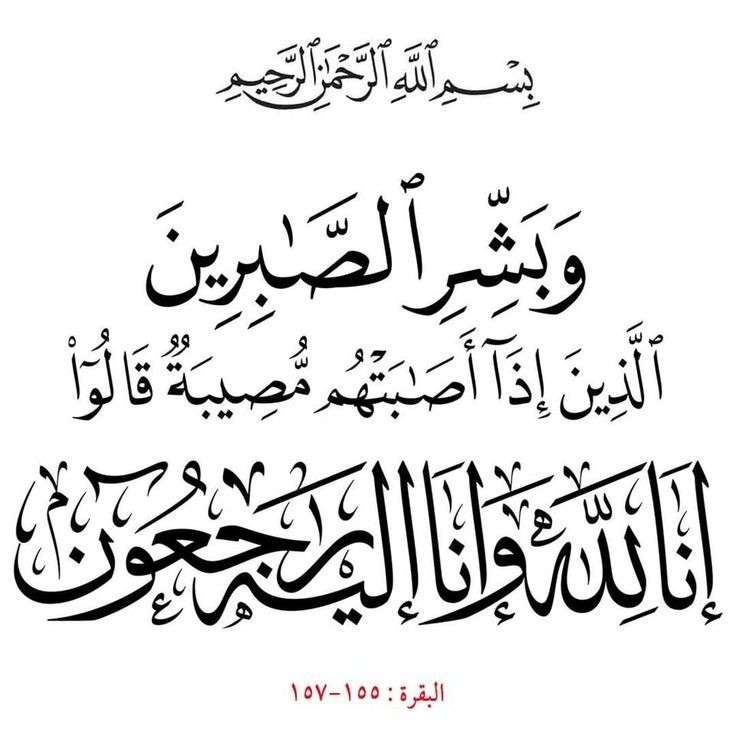 بِسْمِ ٱللَّهِ ٱلرَّحْمَٰنِ ٱلرَّحِيمِ
وَبَشِّرِ ٱلصَّٰبِرِينَ
ٱلَّذِينَ إِذَآ أَصَٰبَتْهُم مُّصِيبَةٌ قَالُوٓا۟
إنا لله وإنا إليه راجعون
البقرة : ١٥٥-١٥٧